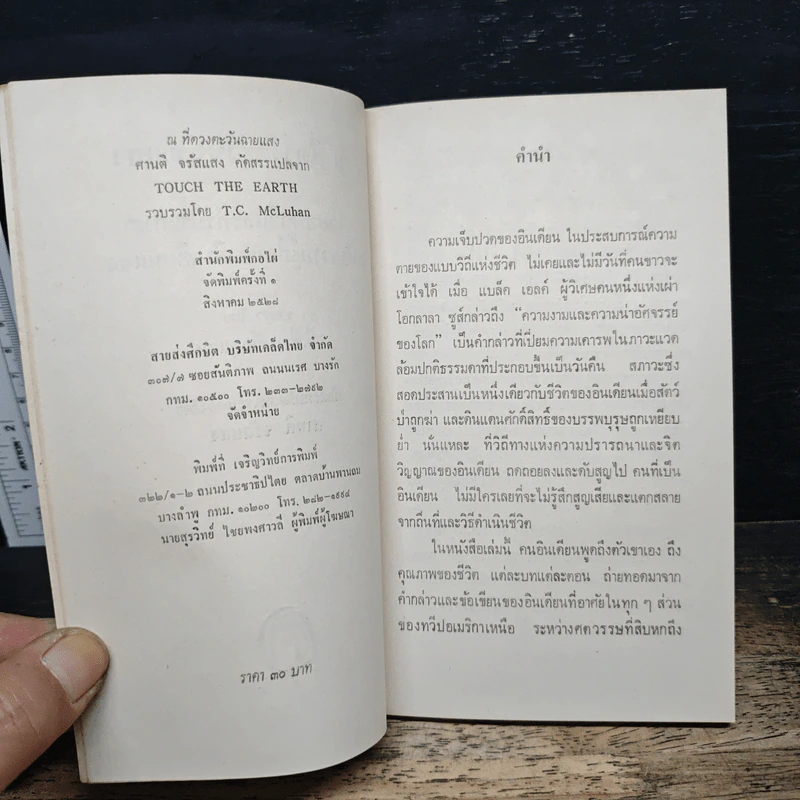 ณ ที่ดวงตะวันฉายแสง
ศานติ จรัสแสง คัดสรรแปลจาก
TOUCH THE EARTH
รวบรวมโดย T.C. McLuhan
สำนักพิมพ์กอไผ่
จัดพิมพ์ครั้งที่ ๑
สิงหาคม ๒๕๒๘
สายส่งศึกษิต บริษัทเคล็ดไทย จำกัด
๓๐๗/๗ ซอยสันติภาพ ถนนนเรศ บางรัก
กทม. ๑๐๕๐๐ โทร. ๒๓๓-๒๗๙๒
จัดจำหน่าย
พิมพ์ที่ เจริญวิทย์การพิมพ์
๓๒๒/๑-๒ ถนนประชาธิปไตย ตลาดบ้านพานถม
บางลำพู กทม. ๑๐๒๐๐ โทร. ๒๘๒-๑๙๙๔
นายสุรวิทย์ ไชยพงศาวลี ผู้พิมพ์ผู้โฆษณา
ราคา ๓๐ บาท
คำนำ
ความเจ็บปวดของอินเดียน ในประสบการณ์ความ
ตายของแบบวิถีแห่งชีวิต ไม่เคยและไม่มีวันที่คนขาวจะ
เข้าใจได้ เมื่อ แบล็ค เอลค์ ผู้วิเศษคนหนึ่งแห่งเผ่า
โอกลาลา ซูส์กล่าวถึง “ความงามและความน่าอัศจรรย์
ของโลก” เป็นคำกล่าวที่เปี่ยมความเคารพในภาวะแวด
ล้อมปกติธรรมดาที่ประกอบขึ้นเป็นวันคืน สภาวะซึ่ง
สอดประสานเป็นหนึ่งเดียวกับชีวิตของอินเดียนเมื่อสัตว์
ป่าถูกฆ่า และดินแดนศักดิ์สิทธิ์ของบรรพบุรุษถูกเหยียบ
ย่ำ นั่นแหละ ที่วิถีทางแห่งความปรารถนาและจิต
วิญญาณของอินเดียน ถดถอยลงและดับสูญไป คนที่เป็น
อินเดียน ไม่มีใครเลยที่จะไม่รู้สึกสูญเสียและแตกสลาย
จากถิ่นที่และวิธีดำเนินชีวิต
ในหนังสือเล่มนี้ คนอินเดียนพูดถึงตัวเขาเอง ถึง
คุณภาพของชีวิต แต่ละบทแต่ละตอน ถ่ายทอดมาจาก
คำกล่าวและข้อเขียนของอินเดียนที่อาศัยในทุก ๆ ส่วน
ของทวีปอเมริกาเหนือ ระหว่างศตวรรษที่สิบหกถึง